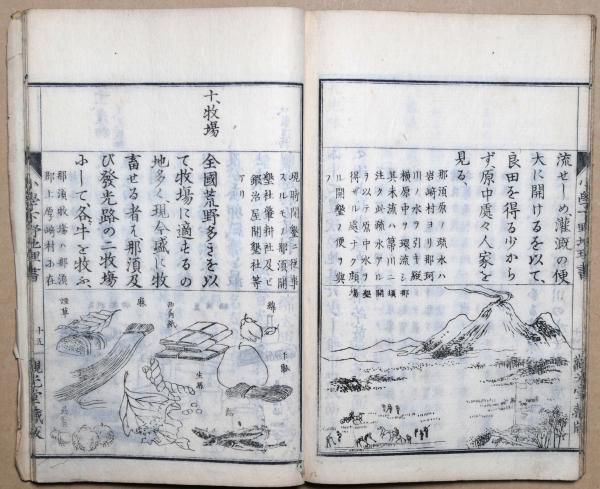 流せしめ灌漑の便
大に開けるを以て、
良田を得る少から
ず原中處々人家を
見る、
那須原ノ疏水ハ
岩崎村ヨリ那珂
川ノ水ヲ引キ縦
横原中ヲ環流シ
其末流ハ箒川ニ
注グ此疏水アル
ヲ以テ原中水ヲ
得ザル處ナク頗
ル開墾ノ便ヲ與
フ
現時開墾ニ從事
スルモノ那須開
墾社肇耕社及ビ
鍛冶屋開墾社等
アリ
十、牧場
全國荒野多きを以
て牧場に適せるの
地多く現今盛に牧
畜せる者は那須及
び發光路の二牧場
にして、各牛を牧ふ、
那須牧場ハ那須
郡上厚崎村ニ在
小學下野地理書
十五
綿
干瓢
西ノ内紙
生麻
麻
煙草